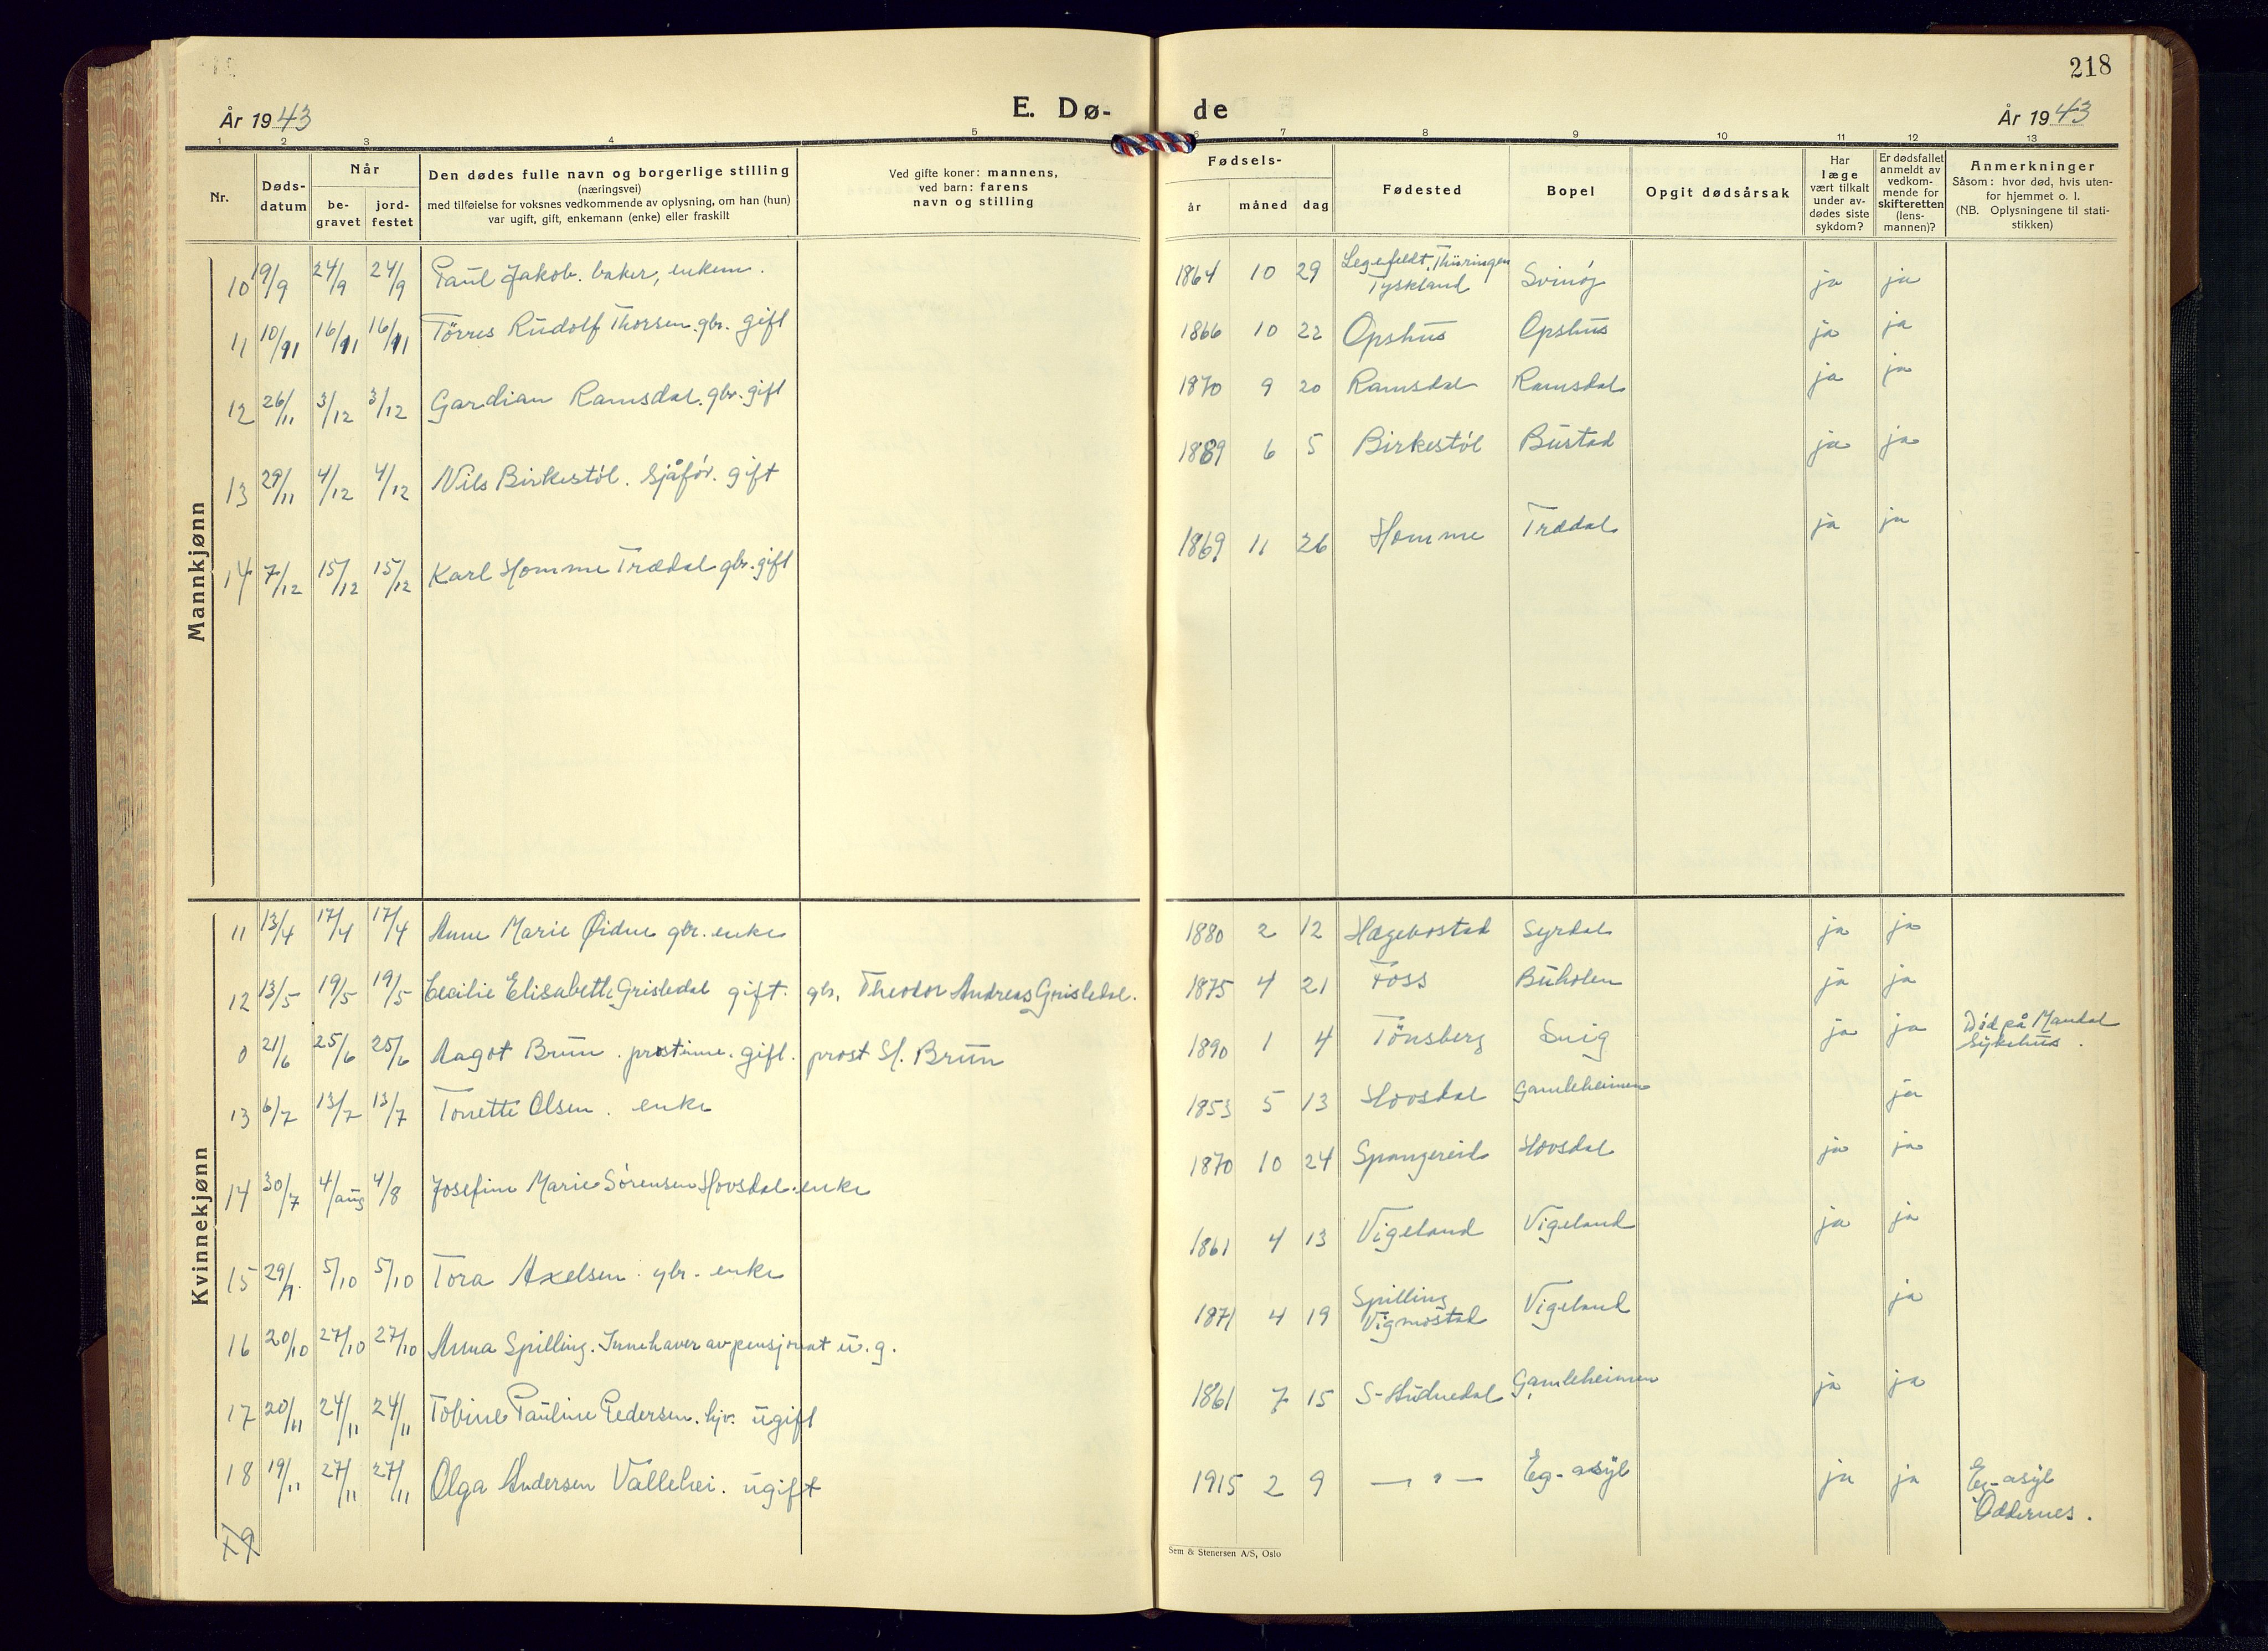 218
År 1943
E. Dø-
de
År 1943
1 2 3 4 5 6 7 8 9 10 11 12 13
Nr.
Døds-
datum
Når
be-
gravet
jord-
festet
Den dødes fulle navn og borgerlige stilling
(næringsvei)
med tilføielse for voksnes vedkommende av oplysning, om han (hun)
var ugift, gift, enkemann (enke) eller fraskilt
Ved gifte koner: mannens,
ved barn: farens
navn og stilling
Fødsels-
år måned dag
Fødested
Bopel
Opgit dødsårsak
Har
læge
vært tilkalt
under av-
dødes siste
sykdom?
Er dødsfallet
anmeldt av
vedkom-
mende for
skifteretten
(lens-
mannen)?
Anmerkninger
Såsom: hvor død, hvis uten-
for hjemmet o. l.
(NB. Oplysningene til stati-
stikken)
Mannkjønn
10 19/9 24/9 24/9 Paul Jakob. baker, enkem. 1864 10 29 Legefeldt, Thüringen Tyskland Svinøy ja ja
11 10/11 16/11 16/11 Tørres Rudolf Thorsen. gbr. gift 1866 10 22 Opshus Opshus ja ja
12 26/11 3/12 3/12 Gardian Ramsdal. gbr. gift 1870 9 20 Ramsdal Ramsdal ja ja
13 29/11 4/12 4/12 Nils Birkestøl. sjåfør. gift 1889 6 5 Birkestøl Bustad ja ja
14 7/12 15/12 15/12 Karl Homme Trædal gbr. gift 1869 11 26 Homme Trædal ja ja
Kvinnekjønn
11 13/4 17/4 17/4 Anne Marie Øidne gbr. enke 1880 2 12 Hægebostad Syrdal ja ja
12 13/5 19/5 19/5 Cecilie Elisabeth Grisledal gift. gbr. Theodor Andreas Grisledal. 1875 4 21 Foss Buholen ja ja
0 21/6 25/6 25/6 Aagot Brun. prostinne. gift. prost H. Brun 1890 1 4 Tönsberg Snig ja ja Død på Mandal Sykehus.
13 6/7 13/7 13/7 Tonette Olsen. enke 1853 5 13 Hovsdal Gamleheimen ja
14 30/7 4/aug 4/8 Josefine Marie Sørensen Hovsdal. enke 1870 10 24 Spangereid Hovsdal ja ja
15 29/9. 5/10 5/10 Tora Axelsen. gbr. enke 1861 4 13 Vigeland Vigeland ja ja
16 20/10 27/10 27/10 Anna Spilling. Innehaver av pensjonat u. g. 1871 4 19 Spilling Vigmostad Vigeland ja
17 20/11 24/11 24/11 Tobine Pauline Pedersen. hjv. ugift 1861 7 15 S-Audnedal Gamleheimen ja ja
18 19/11 27/11 27/11 Olga Andersen Vallehei. ugift 1915 2 9 — " — Eg-asyl ja ja Eg-asyl Oddernes.
19
Sem & Stenersen A/S, Oslo